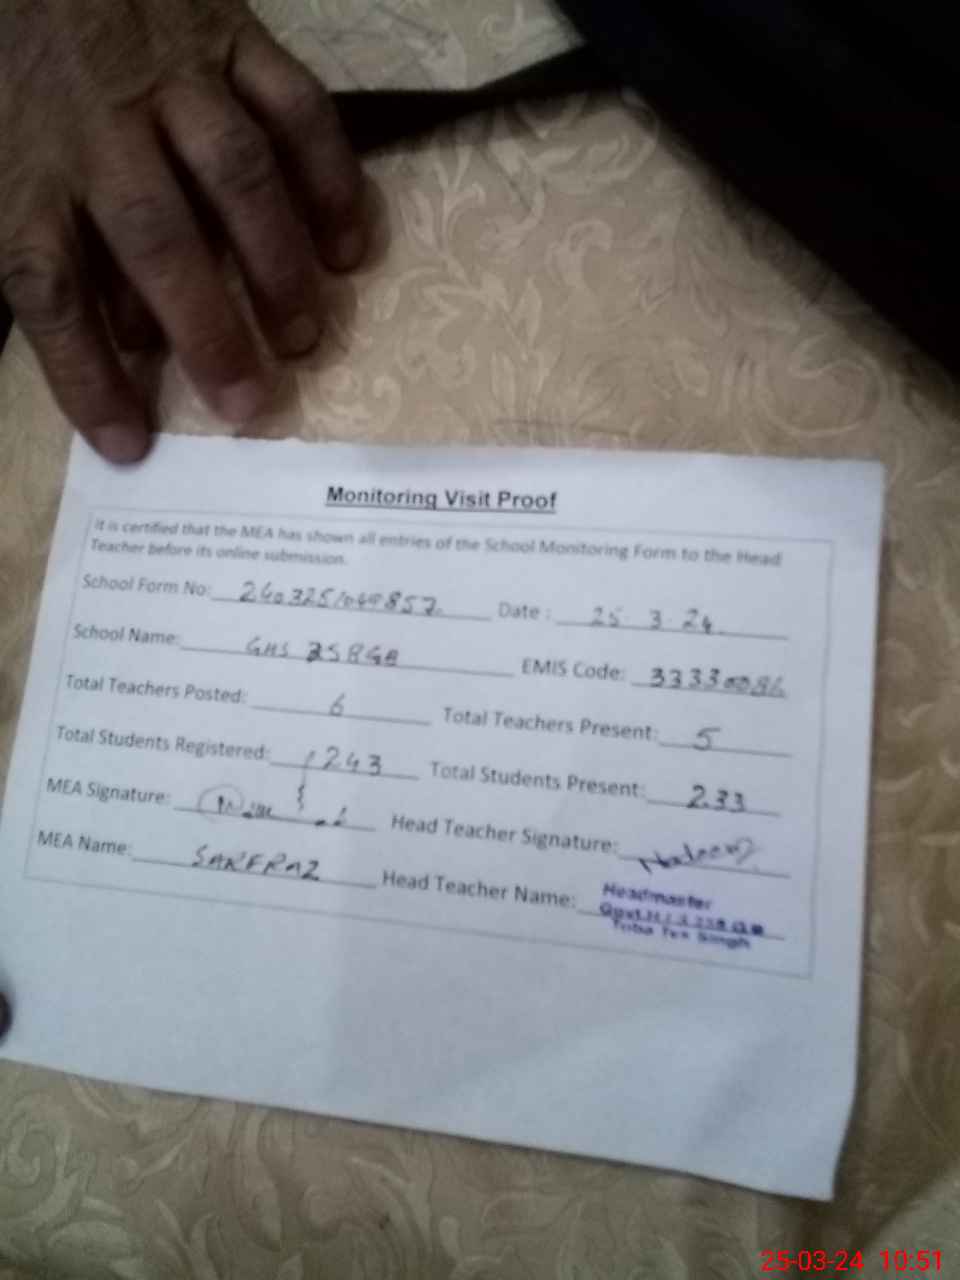 Monitoring Visit Proof
It is certified that the MEA has shown all entries of the School Monitoring Form to the Head
Teacher before its online submission.
School Form No: Date : 25 3 24
School Name: GHS EMIS Code:
Total Teachers Posted: 6 Total Teachers Present: 5
Total Students Registered: 243 Total Students Present: 233
MEA Signature: Head Teacher Signature:
MEA Name: SARFRAZ Head Teacher Name:
Headmaster
Toba Tek Singh
25-03-24 10:51